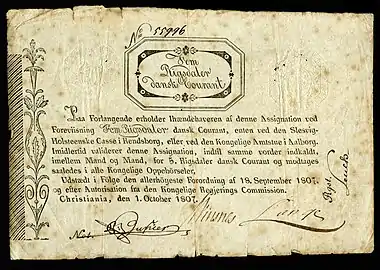 No 55996
Fem
Rigsdaler
dansk Courant
Paa Forlangende erholder Ihændehaveren af denne Assignation ved
Foreviisning Fem Rigsdaler dansk Courant, enten ved den Slesvig-
Holsteenske Casse i Rendsborg, eller ved den Kongelige Amtstue i Aalborg.
Imidlertid validerer denne Assignation, indtil samme vorder indkaldt,
imellem Mand og Mand, for 5. Rigsdaler dansk Courant og modtages
saaledes i alle Kongelige Oppebørseler.
Udstædt i Følge den allerhöieste Forordning af 18. September 1807.
og efter Autorisation fra den Kongelige Regjerings Commission.
Christiania, den 1. October 1807.
Not.